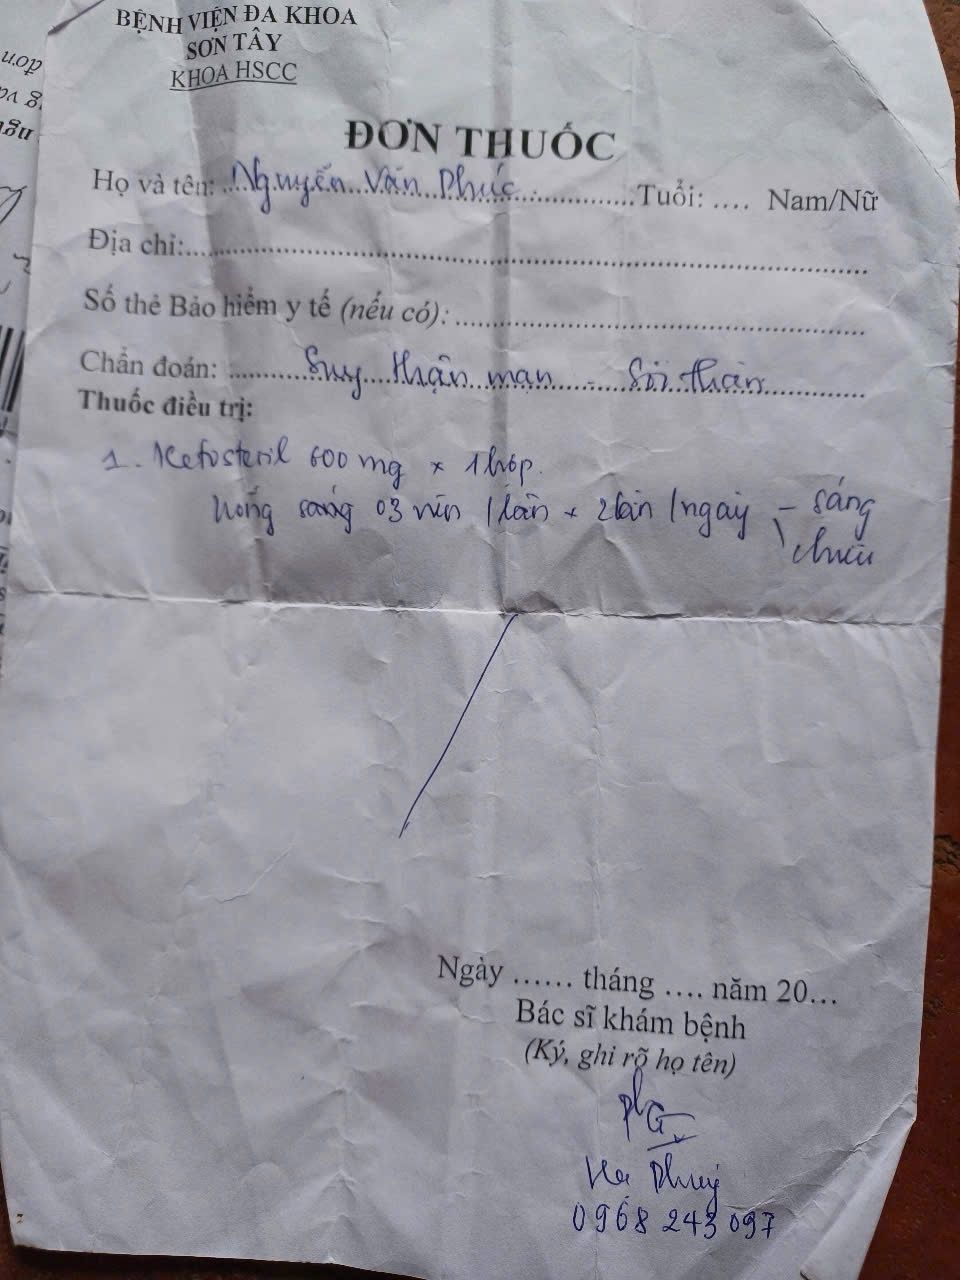 BỆNH VIỆN ĐA KHOA
SƠN TÂY
KHOA HSCC
ĐƠN THUỐC
Họ và tên: Nguyễn Văn Phúc Tuổi: .... Nam/Nữ
Địa chỉ:
Số thẻ Bảo hiểm y tế (nếu có):
Chẩn đoán: Suy thận mạn - Sỏi thận
Thuốc điều trị:
1. Ketosteril 600 mg x 1 hộp.
Uống sáng 03 viên / lần x 2 lần / ngày - sáng
\ chiều
Ngày ...... tháng .... năm 20...
Bác sĩ khám bệnh
(Ký, ghi rõ họ tên)
0968 243 097